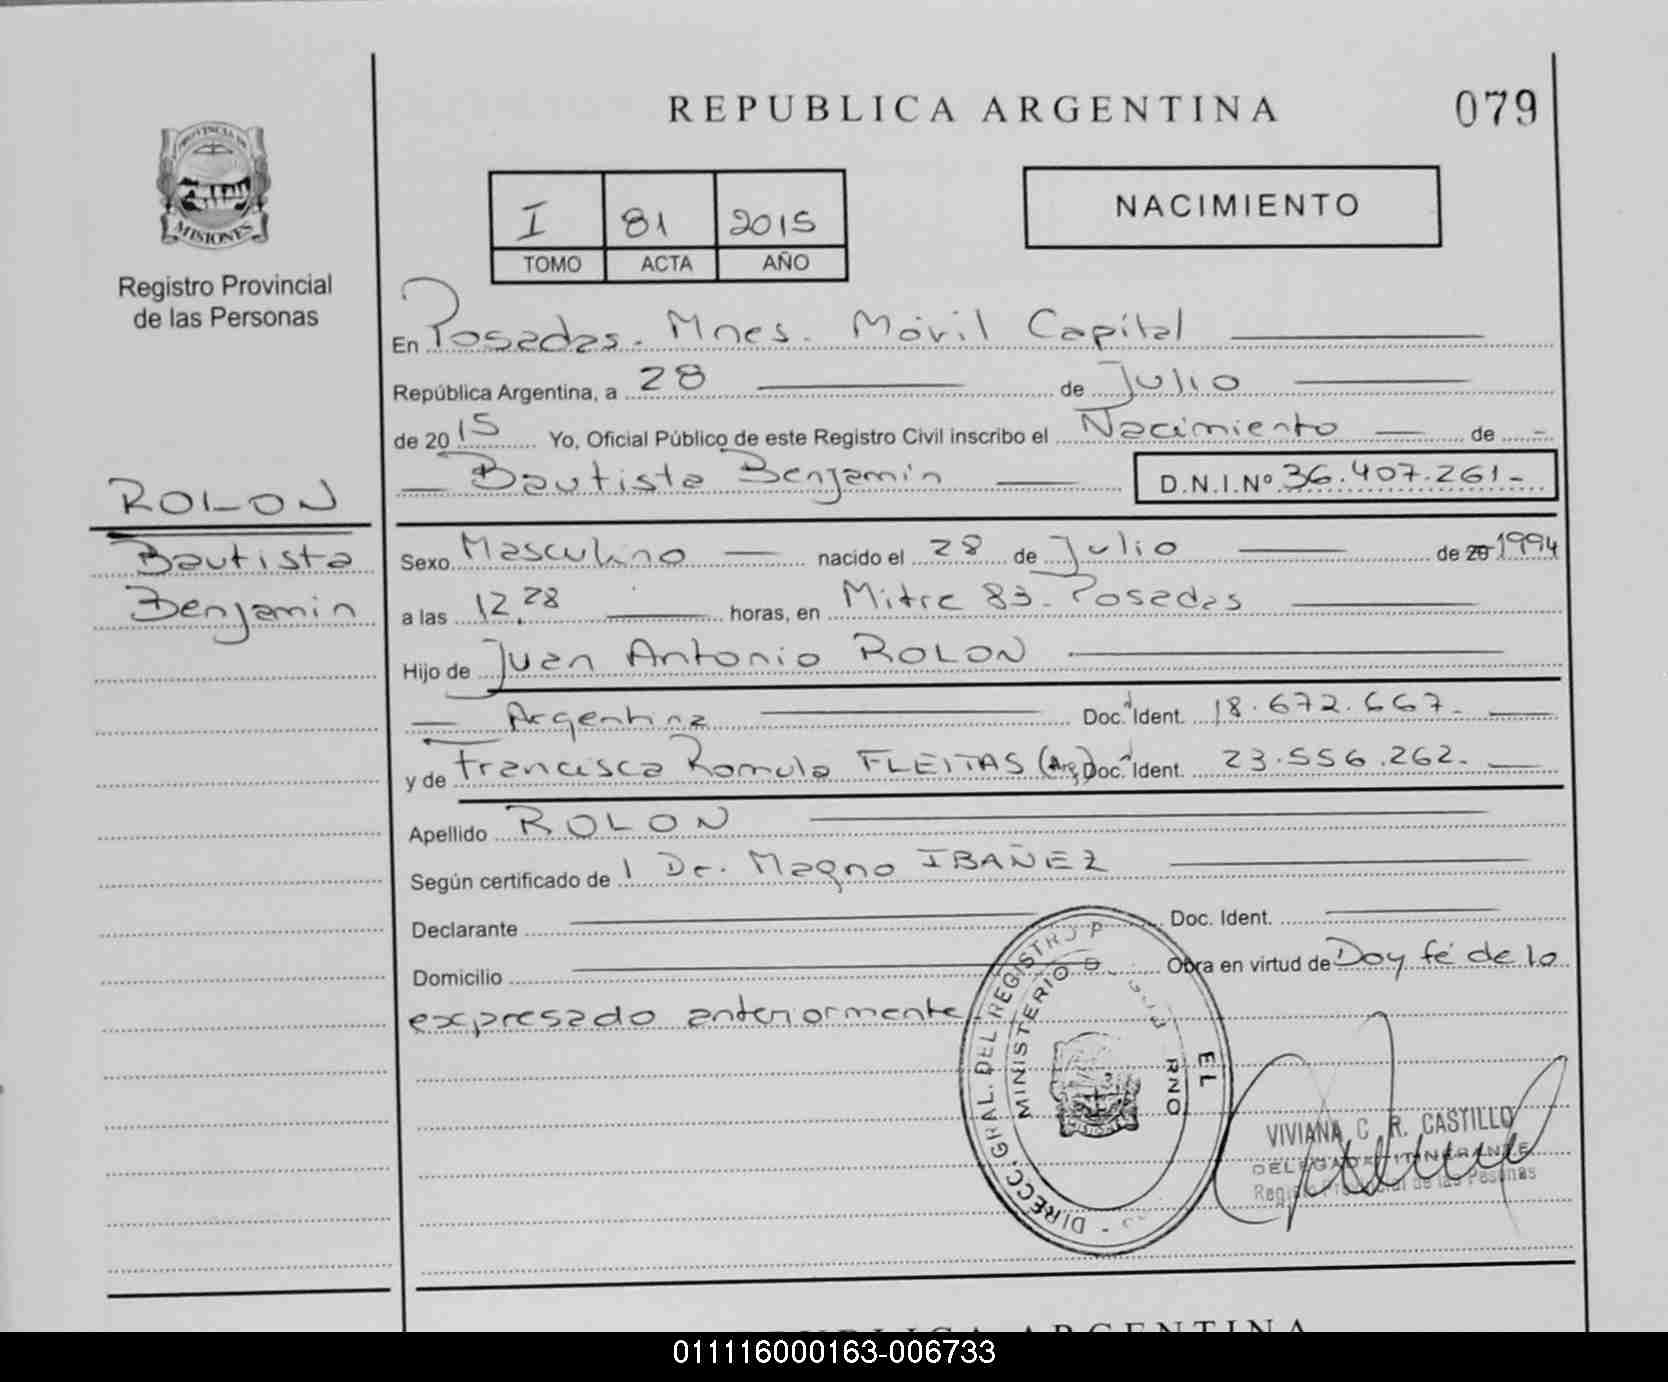 REPUBLICA ARGENTINA
079
PROVINCIA DE
MISIONES
Registro Provincial
de las Personas
I 81 2015
TOMO ACTA AÑO
NACIMIENTO
En Posadas. Mnes. Móvil Capital
República Argentina, a 28 de Julio
de 2015 Yo, Oficial Público de este Registro Civil inscribo el Nacimiento de
Bautista Benjamín D.N.I.Nº 36.407.261-
ROLON
Bautista
Benjamin
Sexo Masculino nacido el 28 de Julio de 20 1994
a las 12,28 horas, en Mitre 83 - Posadas
Hijo de Juan Antonio ROLON
Argentina Doc. Ident. 18.672.667.
y de Francisca Romula FLEITAS (Arg) Doc. Ident. 23.556.262.
Apellido ROLON
Según certificado de Dr. Magno IBAÑEZ
Declarante Doc. Ident.
Domicilio Obra en virtud de Doy fé de lo
expresado anteriormente
DIRECC. GRAL. DEL REGISTRO P
MINISTERIO D
EL
RNO
MISIONES
VIVIANA C R. CASTILLO
DELEGADA ITINERANTE
Registro Provincial de las Pesonas
REPUBLICA ARGENTINA
011116000163-006733